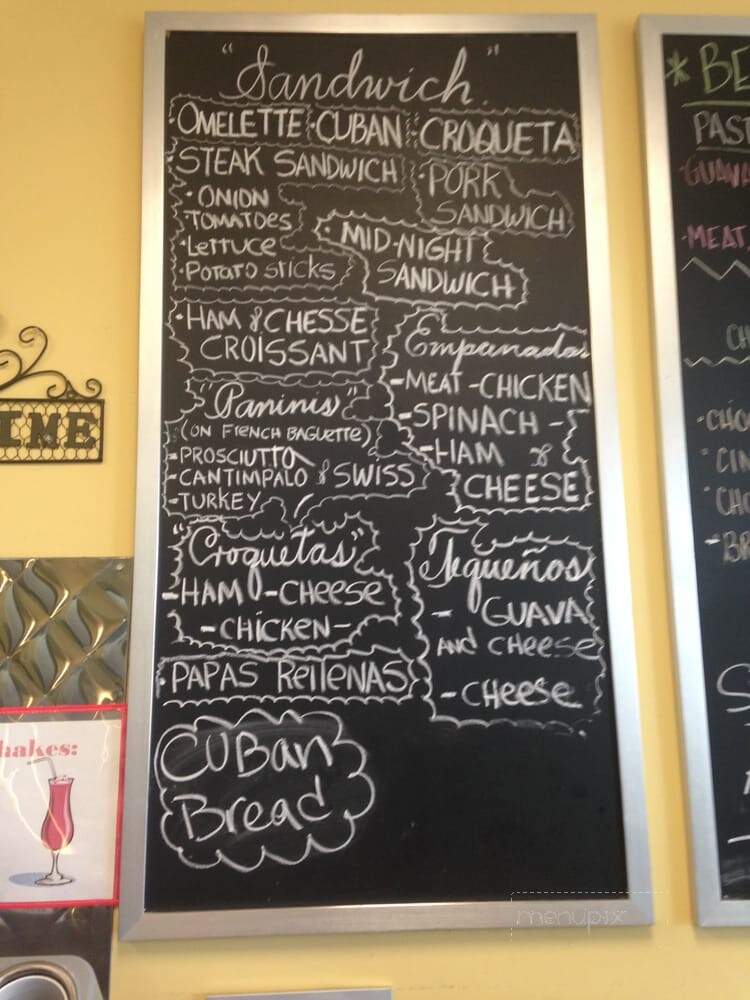 "Sandwich"
OMELETTE · CUBAN · CROQUETA
STEAK SANDWICH
· ONION
· TOMATOES
· LETTUCE
· POTATO STICKS
· PORK
SANDWICH
· MID-NIGHT
SANDWICH
· HAM & CHESSE
CROISSANT
Empanadas
- MEAT - CHICKEN
- SPINACH -
- HAM &
CHEESE
"Paninis"
(ON FRENCH BAGUETTE)
- PROSCIUTTO
- CANTIMPALO & SWISS
- TURKEY
"Croquetas"
- HAM - CHEESE
- CHICKEN -
Tequeños
- GUAVA
AND CHEESE
- CHEESE
· PAPAS ReITENAS
CUBan
Bread
* BE
PAST
· GUAVA
· MEAT
- CHO
· CIN
· CHO
- BR
IME
hakes:
menupix